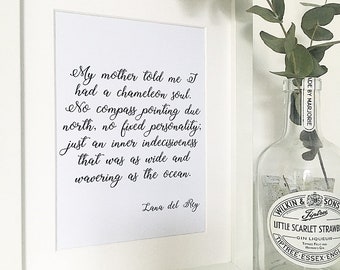 My mother told me I
had a chameleon soul.
No compass pointing due
north, no fixed personality;
just an inner indecisiveness
that was as wide and
wavering as the ocean.
Lana del Rey
MADE BY MARJORIE
WILKIN & SONS LTD
Tiptree
LITTLE SCARLET STRAWB
GIN LIQUEUR
TIPTREE · ESSEX · EN